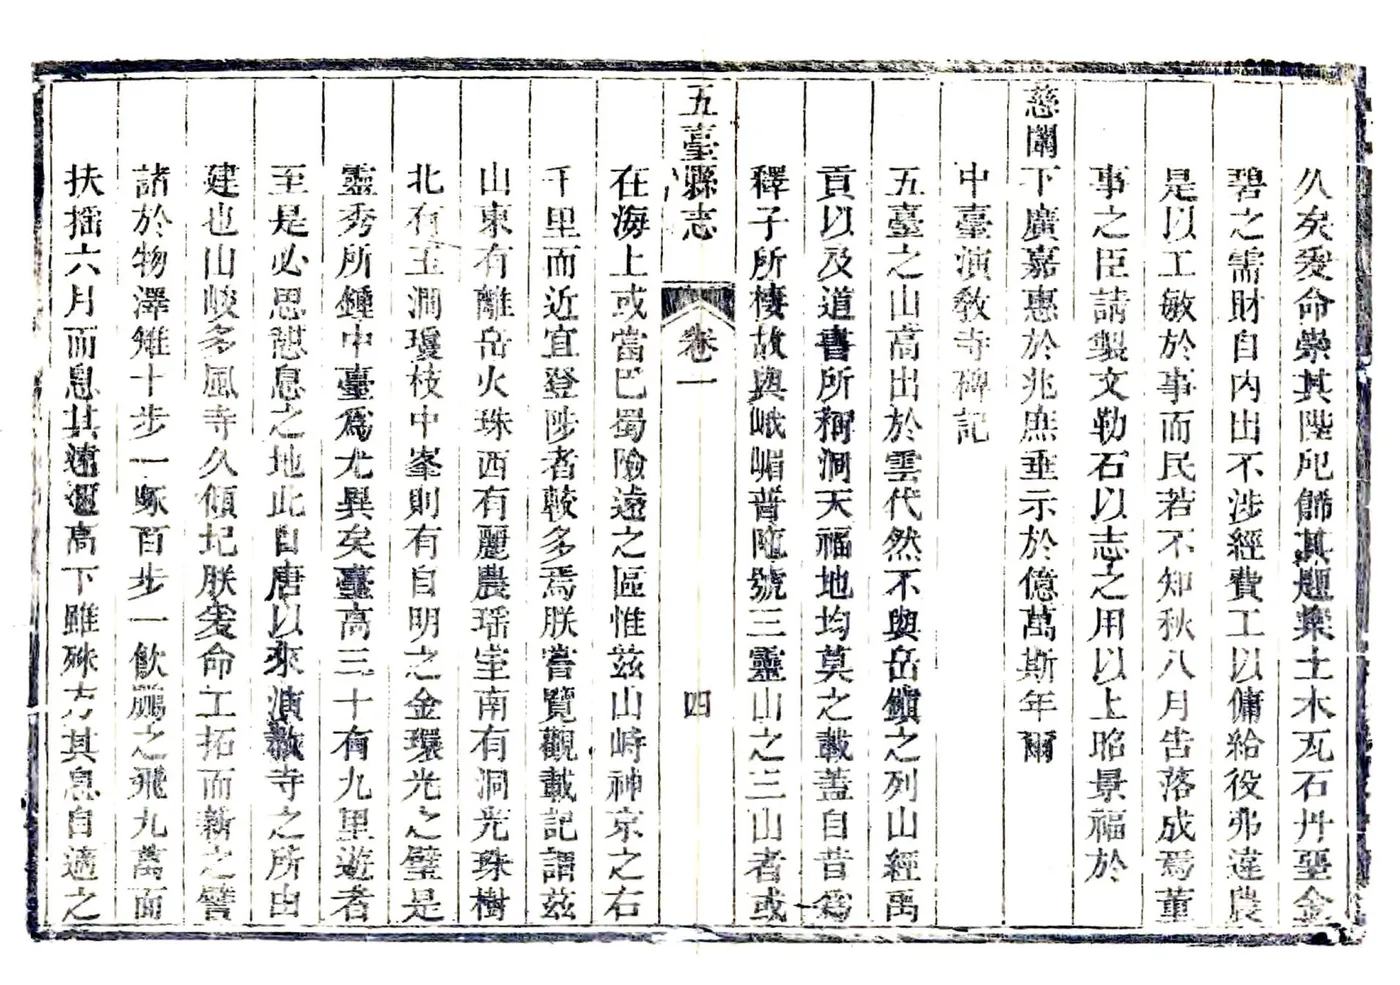 久矣爰命崇其陛戺飾其題業土木瓦石丹堊金
碧之需財自內出不涉經費工以傭給役弗違農
是以工敏於事而民若不知秋八月告落成焉董
事之臣請製文勒石以志之用以上昭景福於
慈闈下廣嘉惠於兆庶垂示於億萬斯年爾
中臺演教寺碑記
五臺之山高出於雲代然不與岳鎮之列山經禹
貢以及道書所稱洞天福地均莫之載蓋自昔爲
釋子所棲故與峨嵋普陀號三靈山之三山者或
五臺縣志 卷一 四
在海上或當巴蜀險遠之區惟茲山峙神京之右
千里而近宜登陟者較多焉朕嘗覽觀載記謂茲
山東有離岳火珠西有麗農瑶室南有洞光珠樹
北有玉澗瓊枝中峯則有自明之金環光之璧是
靈秀所鍾中臺爲尤異矣臺高三十有九里遊者
至是必思憇息之地此自唐以來演教寺之所由
建也山峻多風寺久傾圮朕爰命工拓而新之譬
諸於物澤雉十步一啄百步一飲鵬之飛九萬而
扶搖六月而息其遠邇高下雖殊方其息自適之